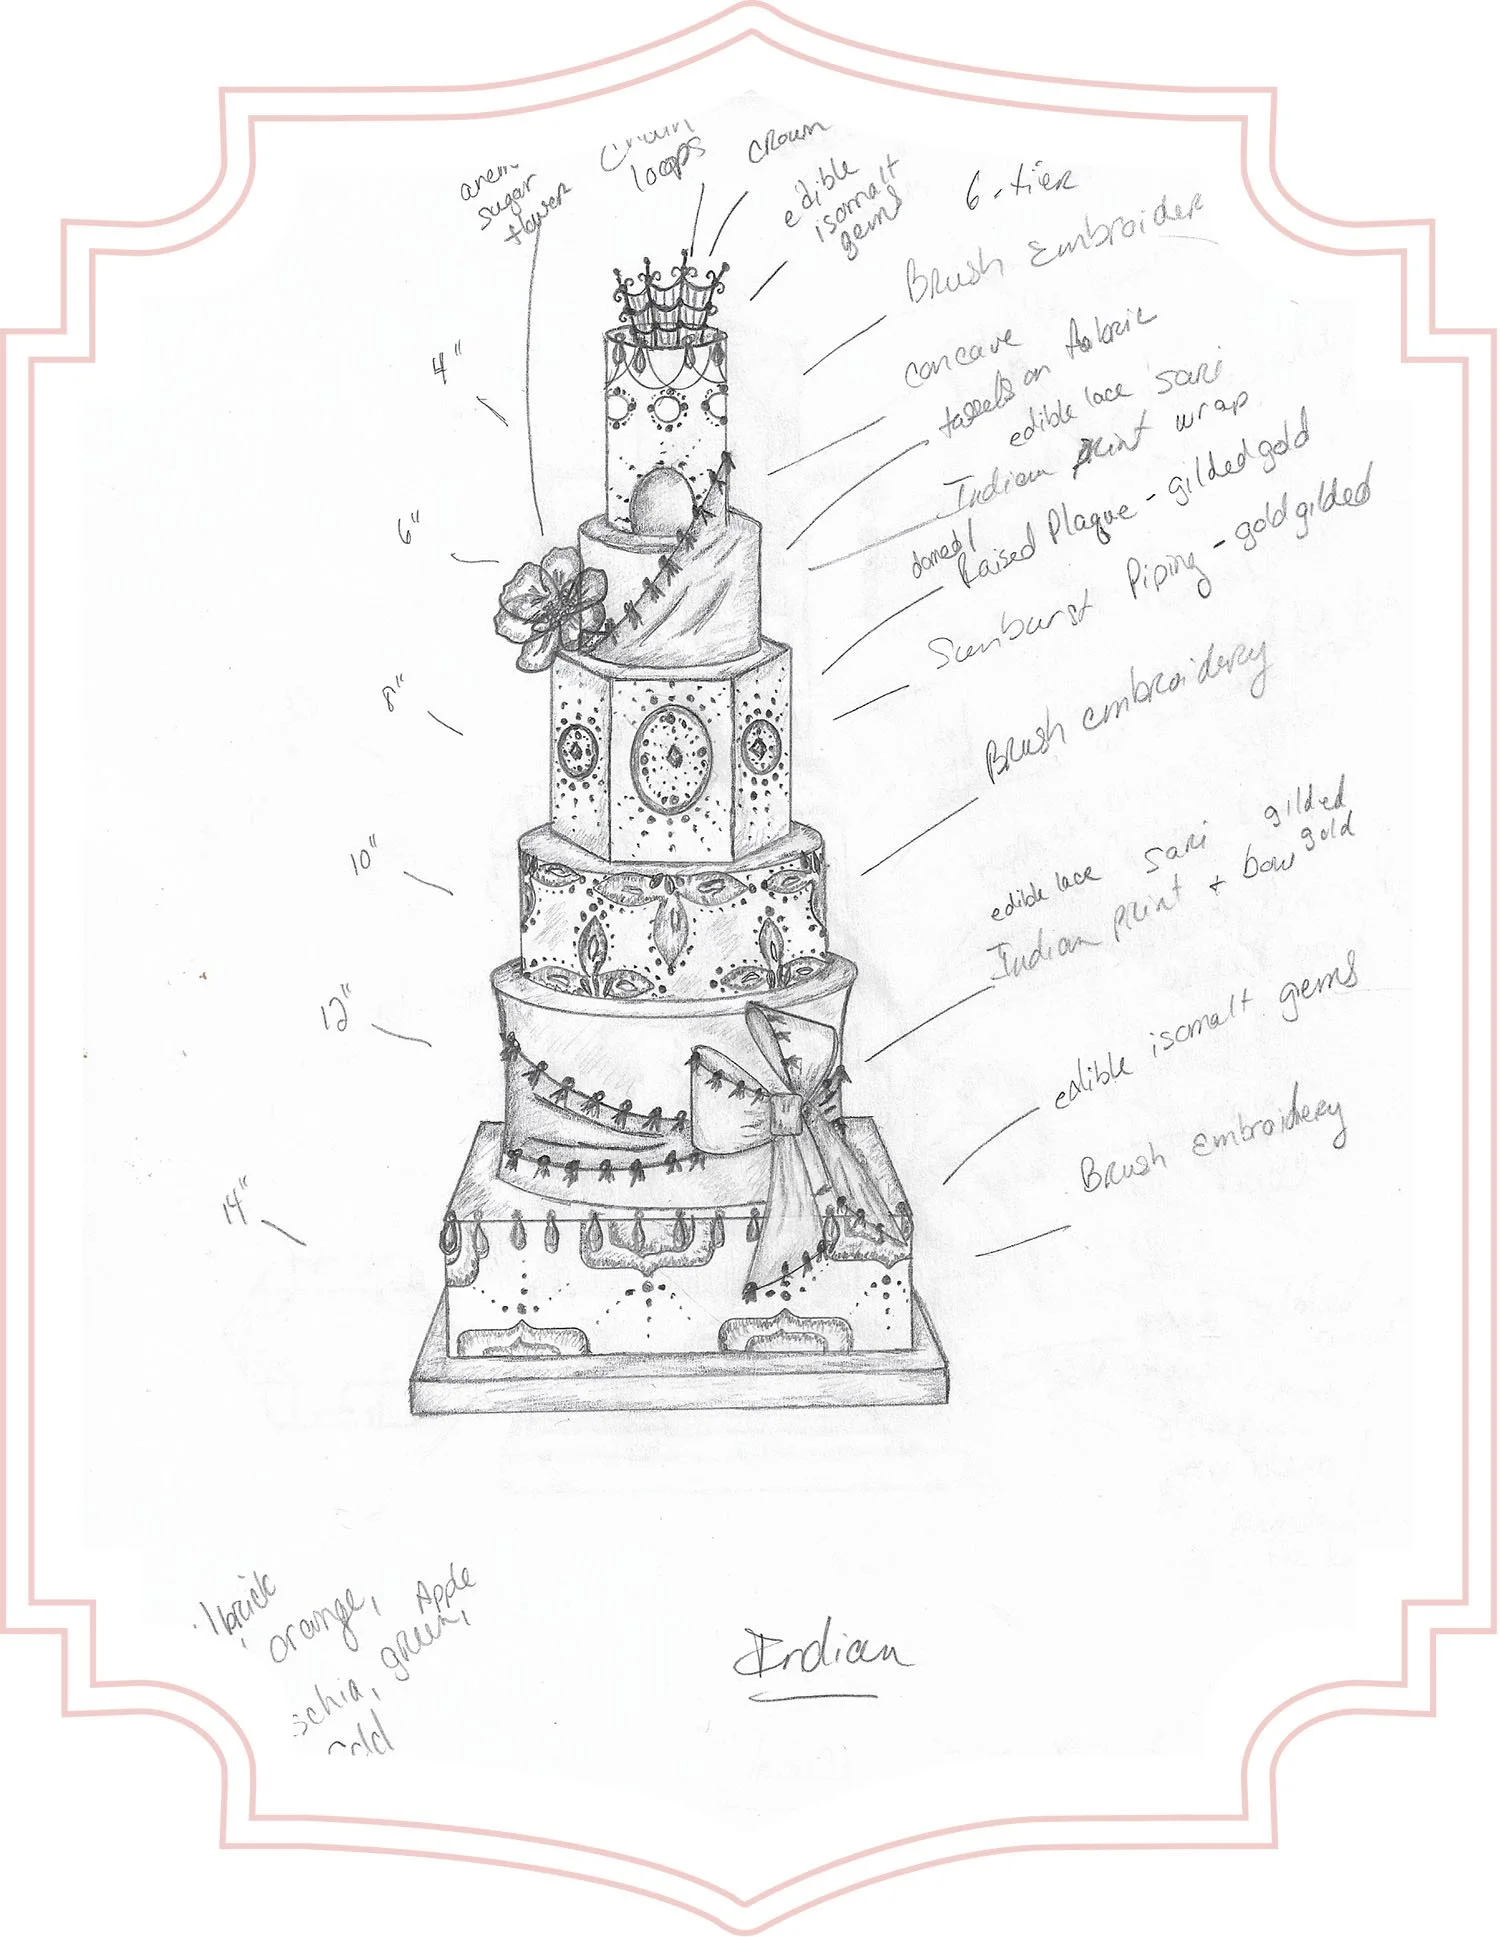 sugar
flower
loops
crown
edible
isomalt
gems
6-tier
Brush Embroider
4"
concave
tassels on fabric
edible lace sari
Indian print wrap
6"
domed/
Raised Plaque - gilded gold
Sunburst Piping - gold gilded
8"
Brush embroidery
10"
edible lace sari gilded
gold
Indian print + bow
12"
edible isomalt gems
14"
Brush Embroidery
brick
orange, Apple
green,
schia,
Gold
Indian